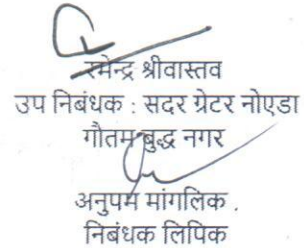 रमेन्द्र श्रीवास्तव
उप निबंधक : सदर ग्रेटर नोएडा
गौतम बुद्ध नगर
अनुपम मांगलिक .
निबंधक लिपिक